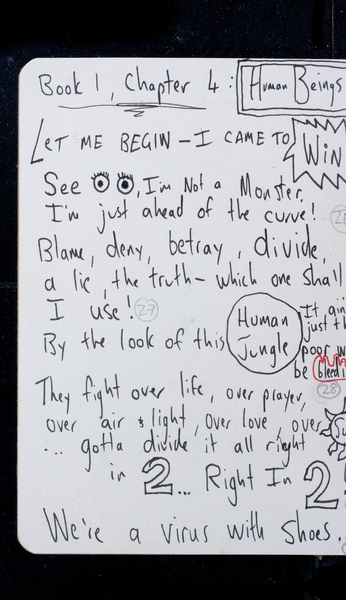 Book 1, Chapter 4: Human Beings
LET ME BEGIN – I CAME TO WiN
See, I'm Not a Monster.
I'm just ahead of the curve!
Blame, deny, betray, divide,
a lie, the truth – which one shall
I use! 27
By the look of this Human Jungle
It ain
just th
poor w
be bleedi
28
They fight over life, over prayer,
over air & light, over love, over
... gotta divide it all right
in 2... Right In 2
We're a virus with shoes.